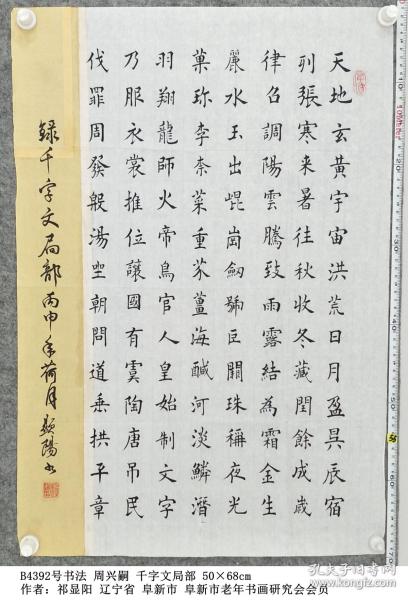 天地玄黃宇宙洪荒日月盈昃辰宿
列張寒来暑往秋收冬藏閏餘成歲
律召調陽雲騰致雨露結為霜金生
麗水玉出崐崗劒號巨闕珠稱夜光
菓珍李柰菜重芥薑海鹹河淡鱗潛
羽翔龍師火帝鳥官人皇始制文字
乃服衣裳推位讓國有虞陶唐吊民
伐罪周發殷湯坐朝問道垂拱平章
録千字文局部丙申年荷月顯陽书
B4392号书法 周兴嗣 千字文局部 50×68cm
作者：祁显阳 辽宁省 阜新市 阜新市老年书画研究会会员